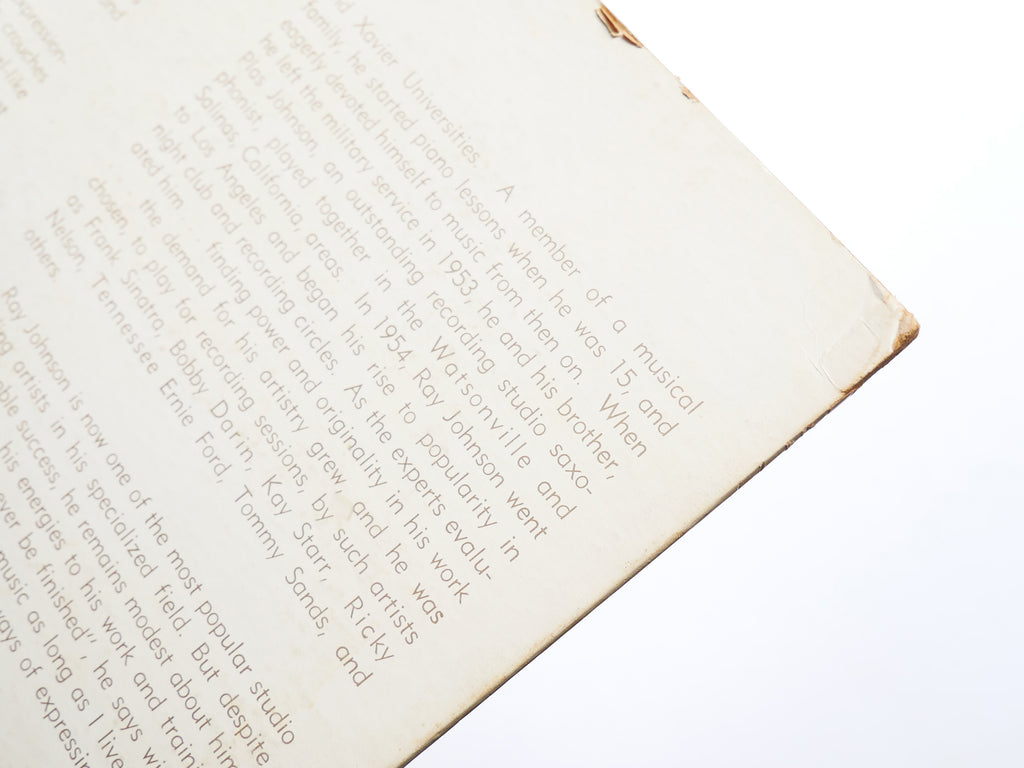 xpression.
couches
-like
nd
nd Xavier Universities. A member of a musical
family, he started piano lessons when he was 15, and
eagerly devoted himself to music from then on. When
he left the military service in 1953, he and his brother,
Plas Johnson, an outstanding recording studio saxo-
phonist, played together in the Watsonville and
Salinas, California, areas. In 1954, Ray Johnson went
to Los Angeles and began his rise to popularity in
night club and recording circles. As the experts evalu-
ated him . . . finding power and originality in his work
the demand for his artistry grew, and he was
chosen, to play for recording sessions, by such artists
as Frank Sinatra, Bobby Darin, Kay Starr, Ricky
Nelson, Tennessee Ernie Ford, Tommy Sands, and
others.
Ray Johnson is now one of the most popular studio
ng artists in his specialized field. But despite
ble success, he remains modest about him
his energies to his work and traini
ver be finished", he says wi
music as long as I live
ays of expressin